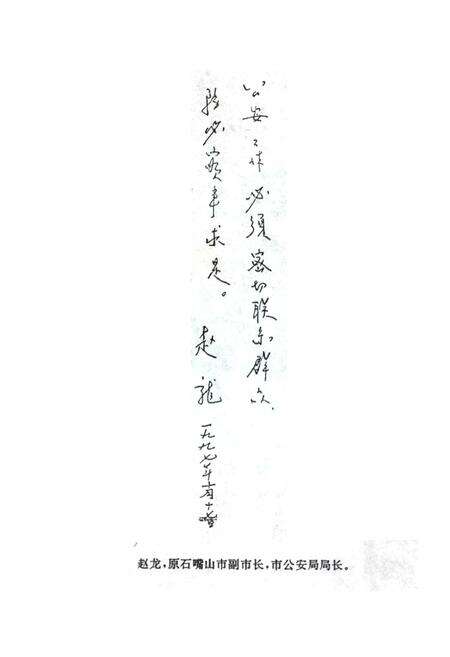 公安工作必须密切联系群众
实事求是。
赵龙
一九九七年
赵龙,原石嘴山市副市长,市公安局局长。